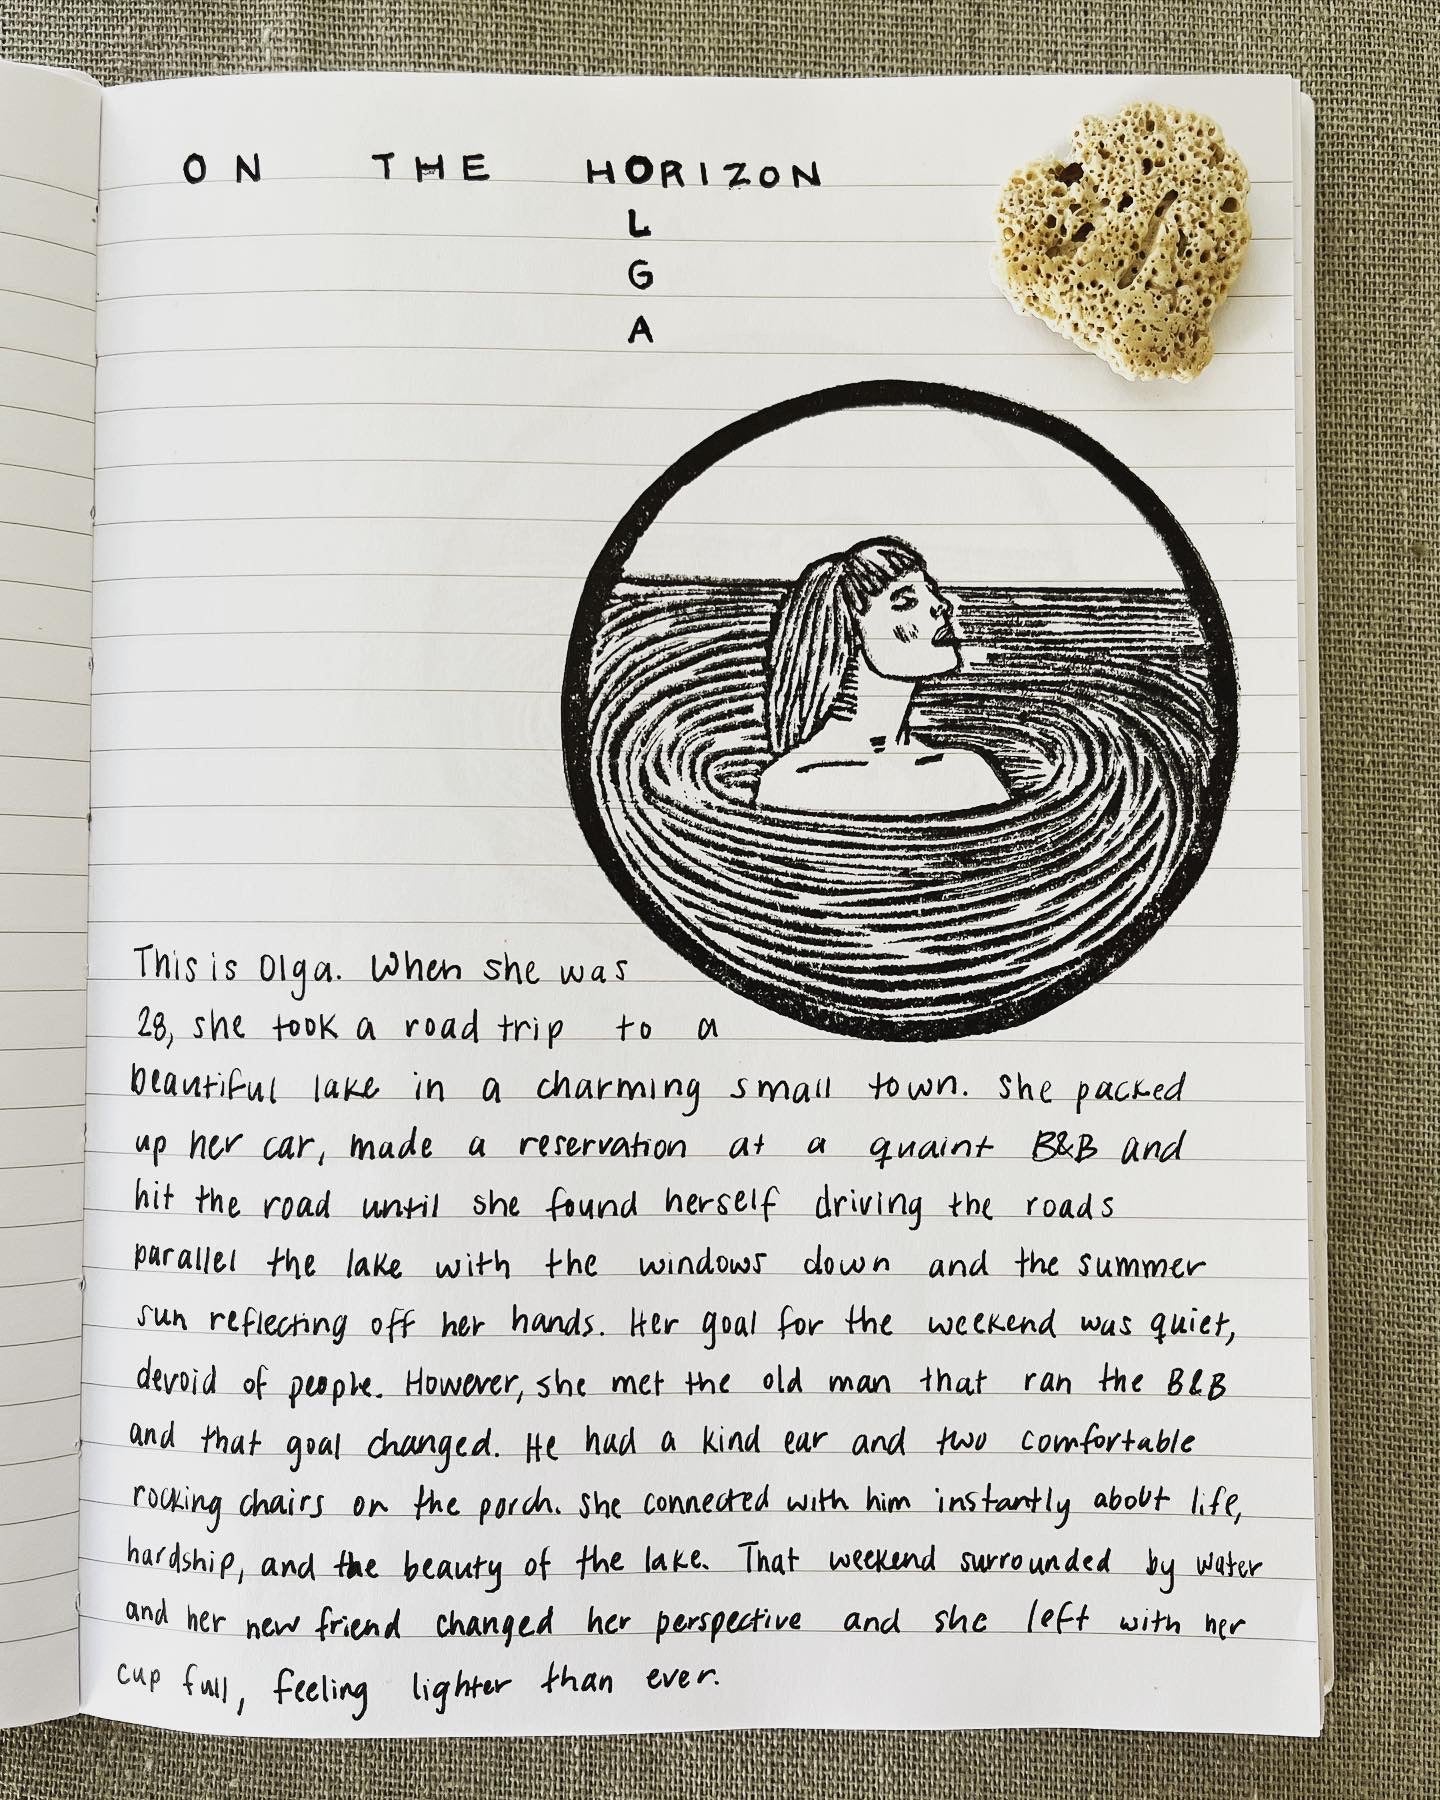 ON THE HORIZON
L
G
A
This is Olga. When she was
28, she took a road trip to a
beautiful lake in a charming small town. She packed
up her car, made a reservation at a quaint B&B and
hit the road until she found herself driving the roads
parallel the lake with the windows down and the summer
sun reflecting off her hands. Her goal for the weekend was quiet,
devoid of people. However, she met the old man that ran the B&B
and that goal changed. He had a kind ear and two comfortable
rocking chairs on the porch. She connected with him instantly about life,
hardship, and the beauty of the lake. That weekend surrounded by water
and her new friend changed her perspective and she left with her
cup full, feeling lighter than ever.